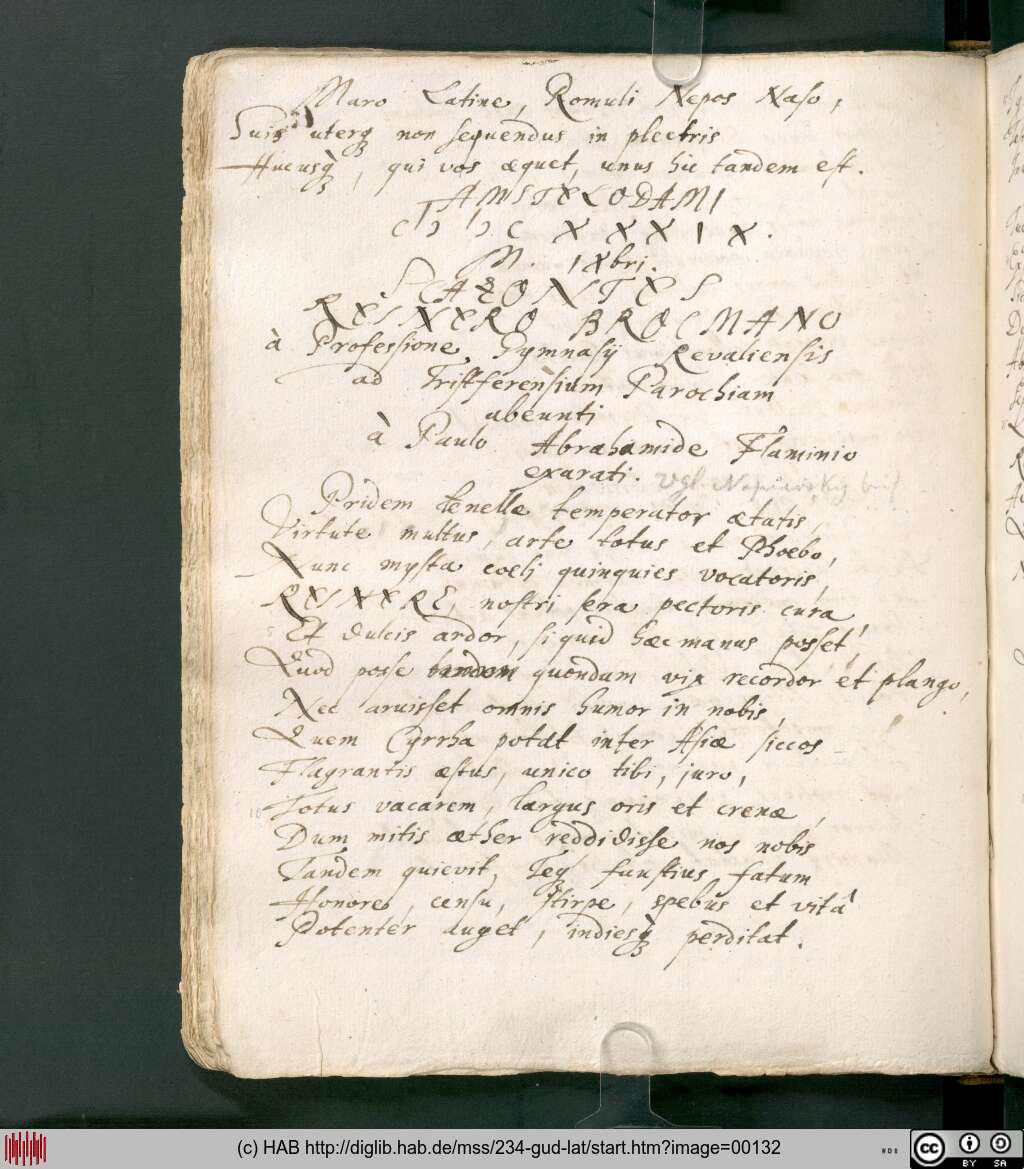 Maro Latine, Romuli Nepos Naso,
Suis uterq; non sequendus in plectris
Hucusq;, qui vos æquet, unus hic tandem est.
AMSTELODAMI
CIↃ IↃC XXXIX.
M. IXbri.
SCAZONTES
REINERO BROCMANO
à Professione Gymnasij Revaliensis
ad Tristferensium Parochiam
abeunti
à Paulo Abrahamide Flaminio
exarati.
Vgl.
Pridem tenellæ temperator ætatis,
Virtute multus, arte totus et Phoebo,
Nunc mysta coelj quinquies vocatoris,
REINERE, nostri sera pectoris cura,
5 Et dulcis ardor, siquid hæc manus posset,
Quod posse quondam vix recordor et plango,
Nec aruisset omnis humor in nobis,
Quem Cyrrha potat inter Asiæ siccos
Flagrantis æstus, unico tibi, juro,
10 Totus vacarem, largus oris et crenæ,
Dum mitis æther reddidisse nos nobis
Tandem quievit, Teq; faustius fatum
Honore, censu, stirpe, spebus et vitâ
Potenter auget, indiesq; perditat.
(c) HAB http://diglib.hab.de/mss/234-gud-lat/start.htm?image=00132
cc BY SA